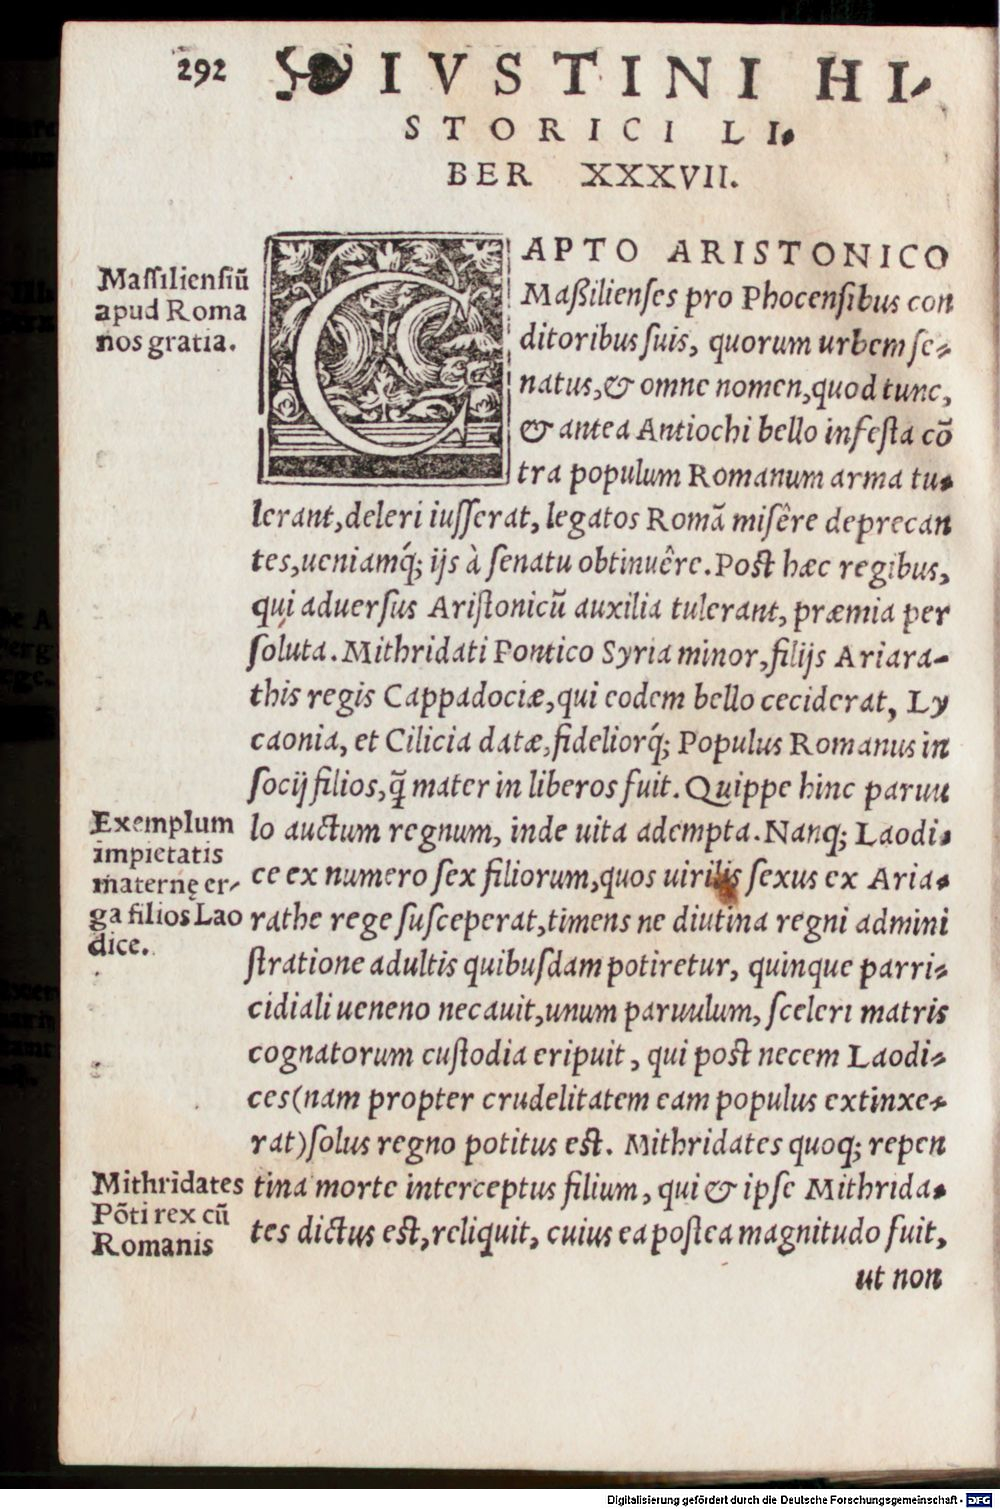 292 IVSTINI HI-
STORICI LI-
BER XXXVII.
Massiliensiũ
apud Roma
nos gratia.
CAPTO ARISTONICO
Maßilienses pro Phocensibus con
ditoribus suis, quorum urbem se-
natus, & omne nomen, quod tunc,
& antea Antiochi bello infesta cõ
tra populum Romanum arma tu-
lerant, deleri iusserat, legatos Romã misêre deprecan
tes, ueniamq́; ijs à senatu obtinuêre. Post hæc regibus,
qui aduersus Aristonicũ auxilia tulerant, præmia per
soluta. Mithridati Pontico Syria minor, filijs Ariara-
this regis Cappadociæ, qui eodem bello ceciderat, Ly
caonia, et Cilicia datæ, fideliorq́; Populus Romanus in
socij filios, q̃ mater in liberos fuit. Quippe hinc paruu
Exemplum
impietatis
maternę er-
ga filios Lao
dice.
lo auctum regnum, inde uita adempta. Nanq; Laodi-
ce ex numero sex filiorum, quos uirilis sexus ex Aria-
rathe rege susceperat, timens ne diutina regni admini
stratione adultis quibusdam potiretur, quinque parri-
cidiali ueneno necauit, unum paruulum, sceleri matris
cognatorum custodia eripuit, qui post necem Laodi-
ces (nam propter crudelitatem eam populus extinxe-
rat) solus regno potitus est. Mithridates quoq; repen
Mithridates
Põti rex cũ
Romanis
tina morte interceptus filium, qui & ipse Mithrida-
tes dictus est, reliquit, cuius ea postea magnitudo fuit,
ut non
Digitalisierung gefördert durch die Deutsche Forschungsgemeinschaft - DFG